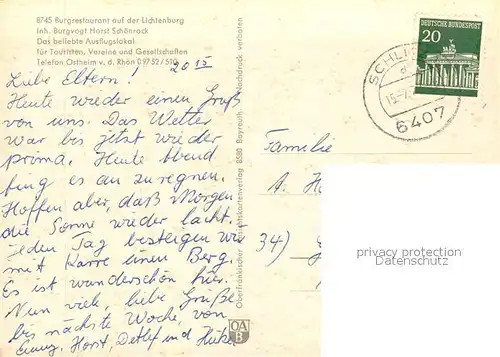 8745 Burgrestaurant auf der Lichtenburg
Inh. Burgvogt Horst Schönrock
Das beliebte Ausflugslokal
für Touristen, Vereine und Gesellschaften
Telefon Ostheim v. d. Rhön 097 52 / 510
Liebe Eltern!
Heute wieder einen Gruß
von uns. Das Wetter
war bis jetzt wieder
prima. Heute Abend
fing es an zu regnen.
Hoffen aber, daß Morgen
die Sonne wieder lacht.
Jeden Tag besteigen wir
mit Karre einen Berg.
Es ist wunderschön hier.
Nun viele, liebe Grüße
bis nächste Woche, von
Horst, Detlef und Heike
Oberfränkischer Ansichtskartenverlag 8580 Bayreuth Nachdruck verboten
OA
B
DEUTSCHE BUNDESPOST
20
SCHLI
6407
Familie
A. H
34)
privacy protection
Datenschutz